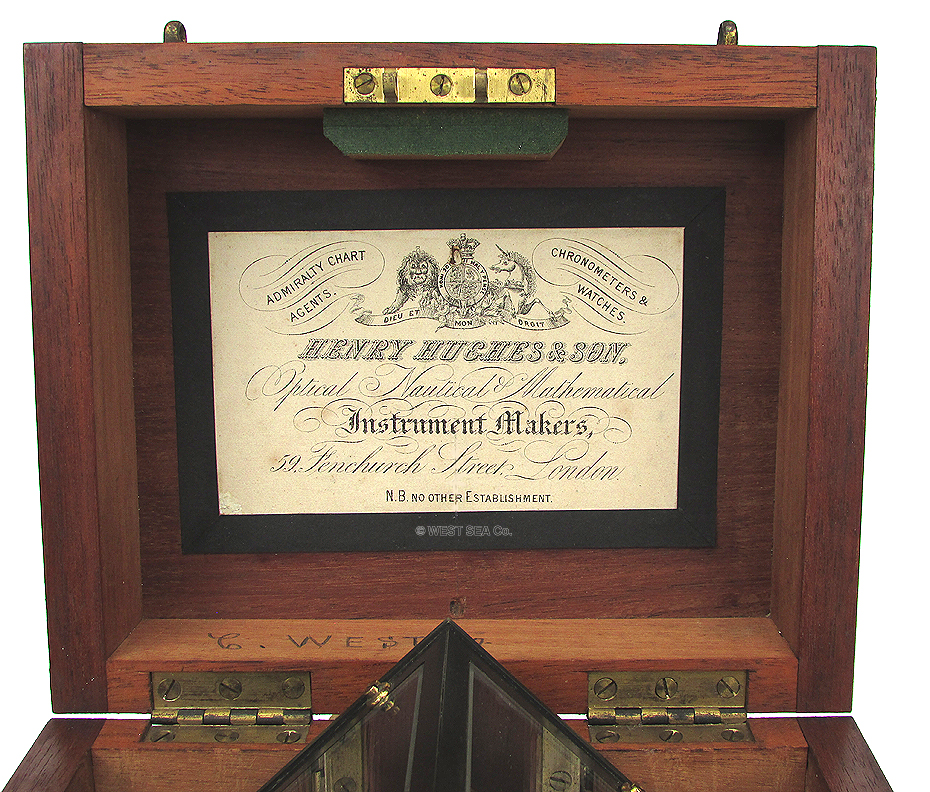 ADMIRALTY CHART
AGENTS.
CHRONOMETERS &
WATCHES.
DIEU ET
MON
DROIT
HENRY HUGHES & SON,
Optical, Nautical & Mathematical
Instrument Makers,
59, Fenchurch Street, London.
N.B. NO OTHER ESTABLISHMENT.
© WEST SEA Co.
C. WEST